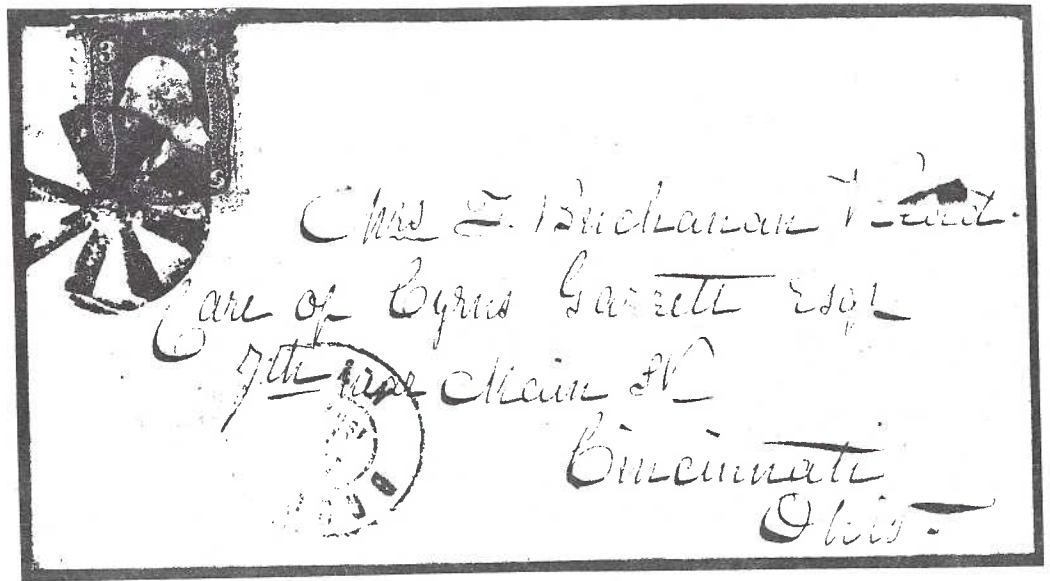 3 3
Mrs T. Buchanan Read.
Care of Cyrus Garrett Esqr
7th near Main St
Cincinnati
Ohio.